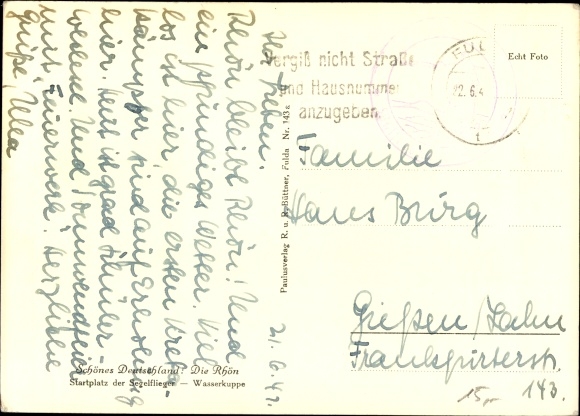 Ihr Lieben.
Rhön bleibt Rhön! Und
ein pfundiges Wetter. Viel
los ist hier, die ersten Kreta-
kämpfer sind auf Erholung
hier. Heut ist grad Schüler-
Und Sonnwendfeier
mit Feuerwerk. Herzliche
Grüße,
21.6.41.
Schönes Deutschland: Die Rhön
Startplatz der Segelflieger — Wasserkuppe
Paulusverlag R. u. R. Büttner, Fulda Nr. 143a
Vergiß nicht Straße
und Hausnummer
anzugeben
FUL
22.6.4
Echt Foto
Familie
Hans Burg
Gießen/Lahn
Frankfurterstr.
15,- 143.